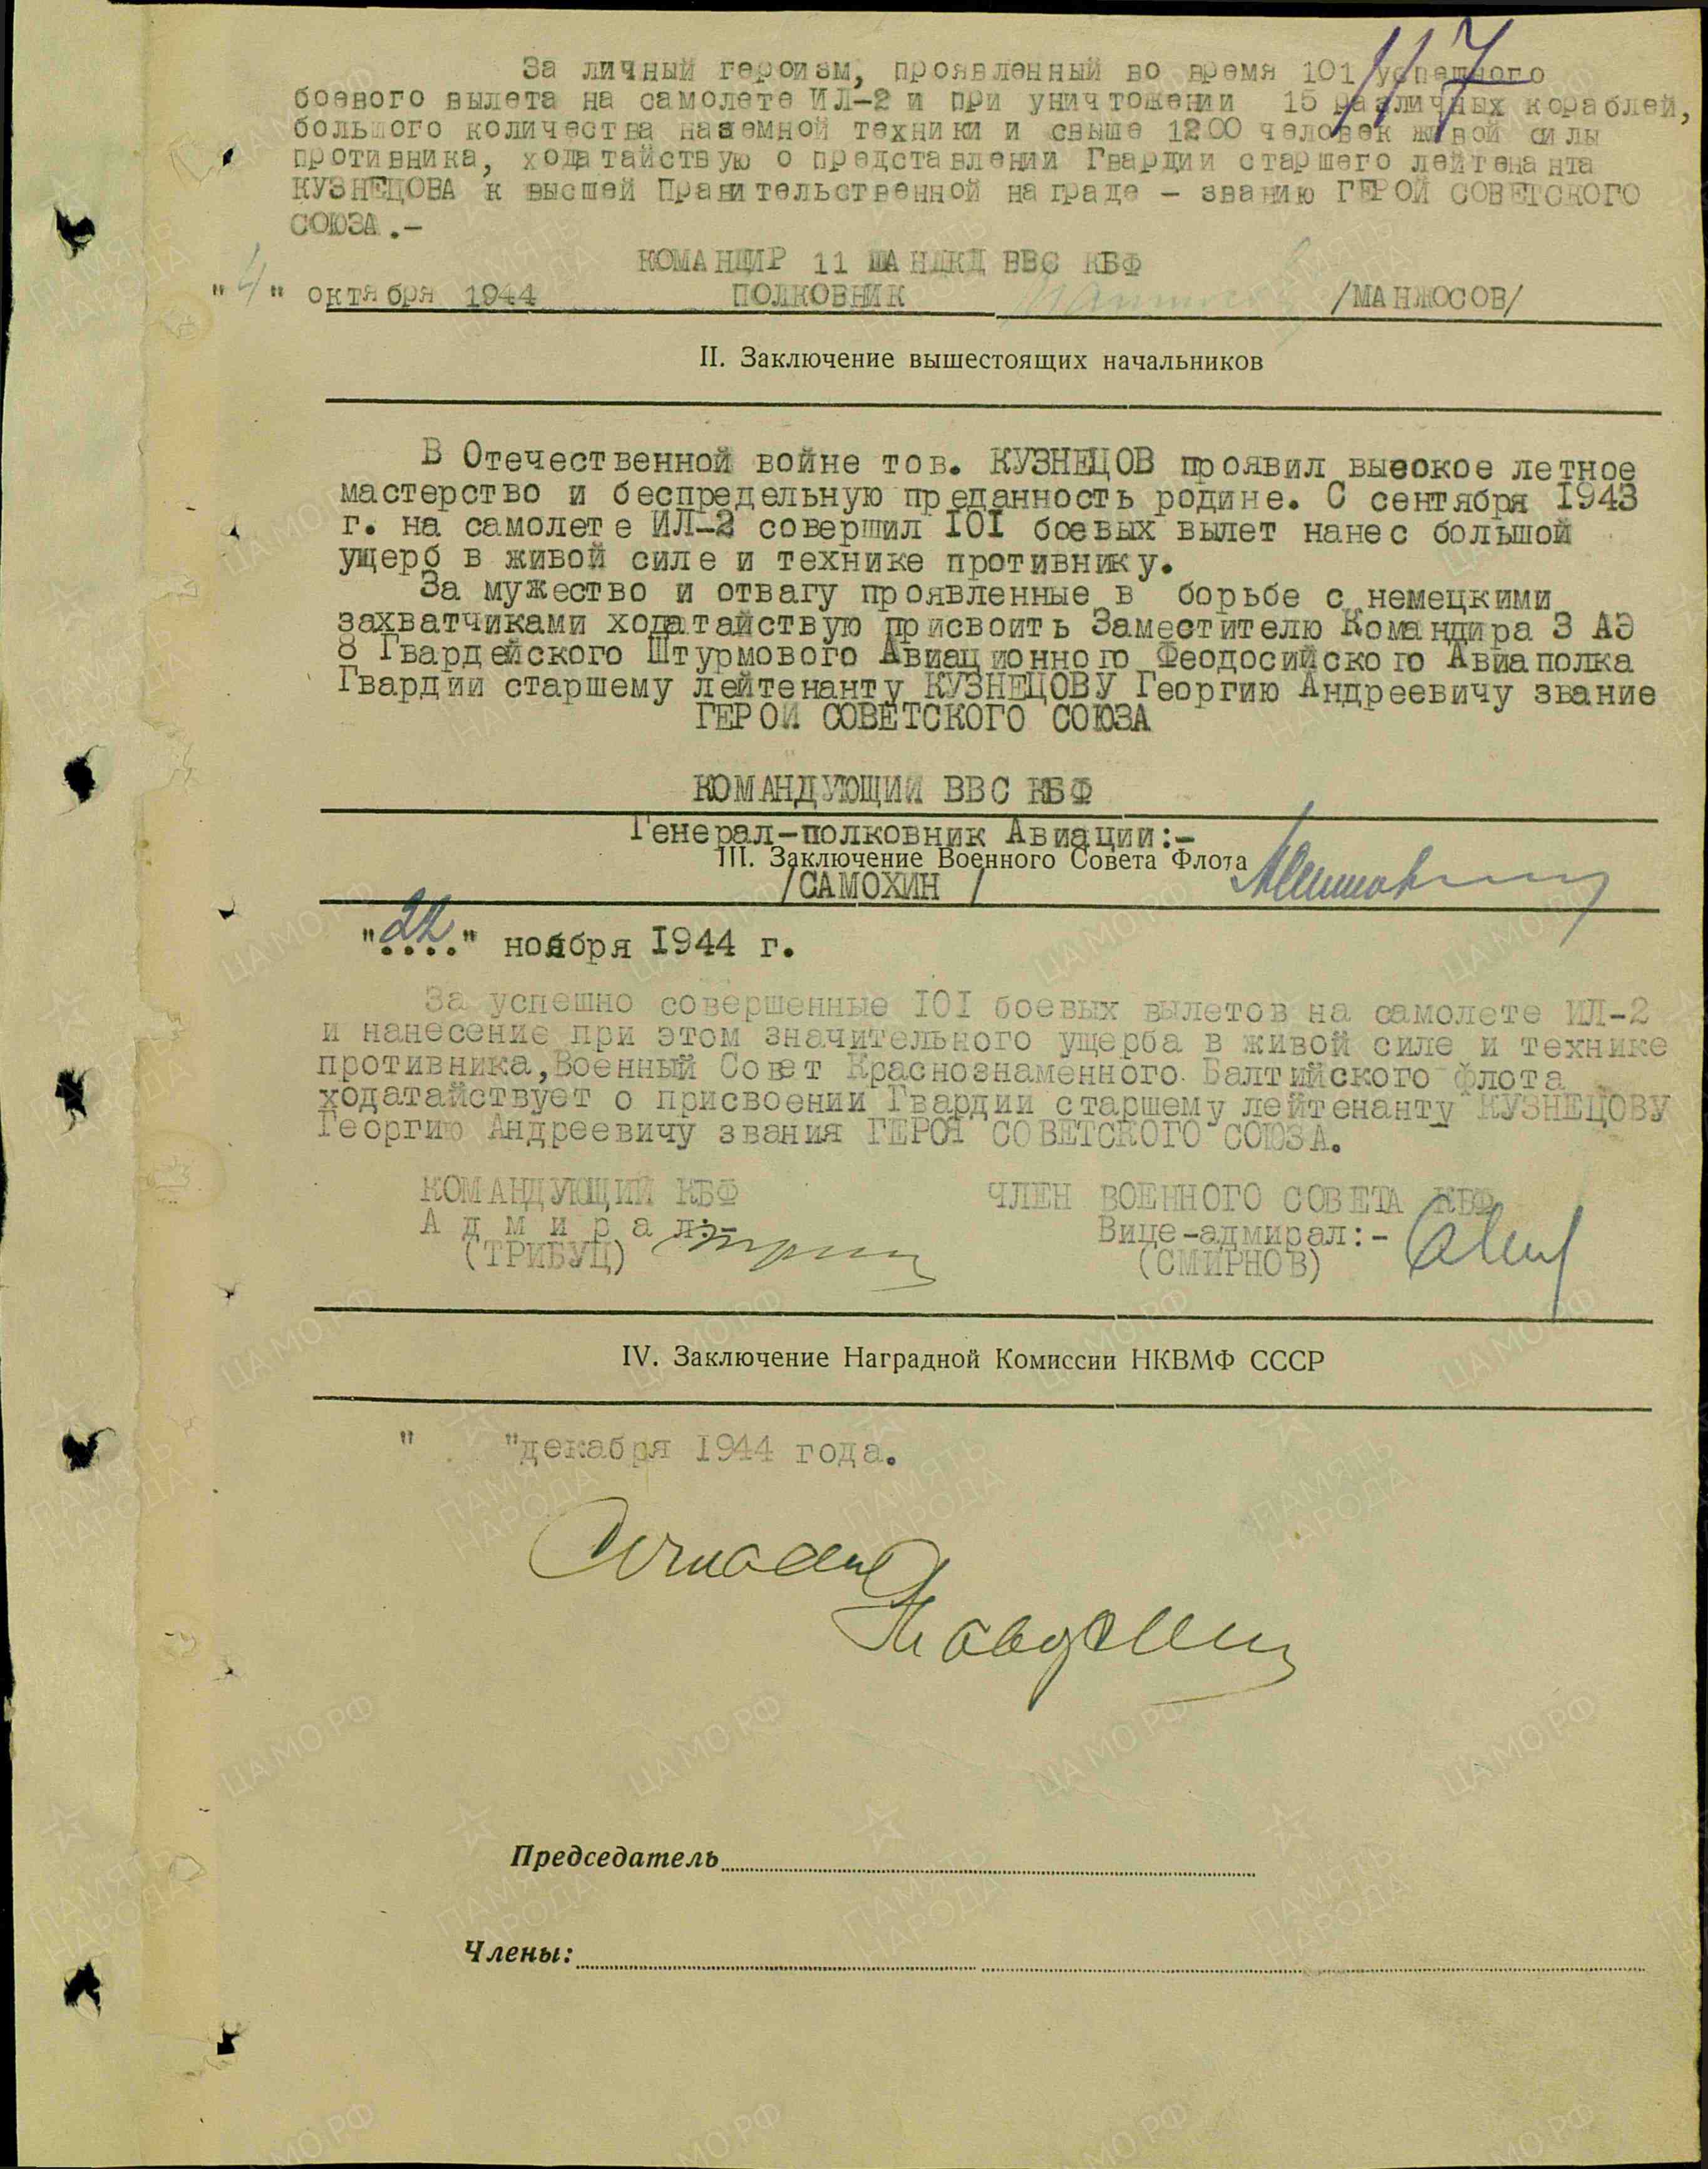 117
За личный героизм, проявленный во время 101 успешного
боевого вылета на самолете ИЛ-2 и при уничтожении 15 различных кораблей,
большого количества наземной техники и свыше 1200 человек живой силы
противника, ходатайствую о представлении Гвардии старшего лейтенанта
КУЗНЕЦОВА к высшей Правительственной награде - званию ГЕРОЙ СОВЕТСКОГО
СОЮЗА.-
КОМАНДИР 11 ШАНДКД ВВС КБФ
"4" октября 1944 ПОЛКОВНИК /МАНЖОСОВ/
II. Заключение вышестоящих начальников
В Отечественной войне тов. КУЗНЕЦОВ проявил высокое летное
мастерство и беспредельную преданность родине. С сентября 1943
г. на самолете ИЛ-2 совершил 101 боевых вылет нанес большой
ущерб в живой силе и технике противнику.
За мужество и отвагу проявленные в борьбе с немецкими
захватчиками ходатайствую присвоить Заместителю Командира 3 АЭ
8 Гвардейского Штурмового Авиационного Феодосийского Авиаполка
Гвардии старшему лейтенанту КУЗНЕЦОВУ Георгию Андреевичу звание
ГЕРОЙ СОВЕТСКОГО СОЮЗА
КОМАНДУЮЩИЙ ВВС КБФ
Генерал-полковник Авиации:-
III. Заключение Военного Совета Флота
/САМОХИН /
"22" ноября 1944 г.
За успешно совершенные 101 боевых вылетов на самолете ИЛ-2
и нанесение при этом значительного ущерба в живой силе и технике
противника, Военный Совет Краснознаменного Балтийского флота
ходатайствует о присвоении Гвардии старшему лейтенанту КУЗНЕЦОВУ
Георгию Андреевичу звания ГЕРОЯ СОВЕТСКОГО СОЮЗА.
КОМАНДУЮЩИЙ КБФ ЧЛЕН ВОЕННОГО СОВЕТА КБФ
А д м и р а л:- Вице-адмирал:-
(ТРИБУЦ) (СМИРНОВ)
IV. Заключение Наградной Комиссии НКВМФ СССР
" "декабря 1944 года.
Председатель
Члены: